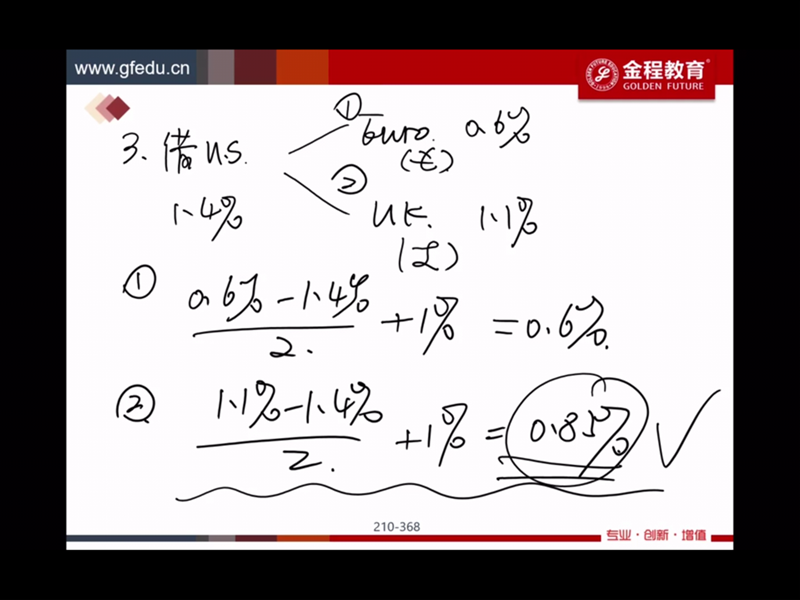 www.gfedu.cn
金程教育
GOLDEN FUTURE
3. 借 U.S.
1.4%
① euro. 0.6%
(€)
② UK. 1.1%
(£)
① (0.6% - 1.4%) / 2. + 1% = 0.6%.
② (1.1% - 1.4%) / 2. + 1% = 0.85% ✓
210-368
专业·创新·增值